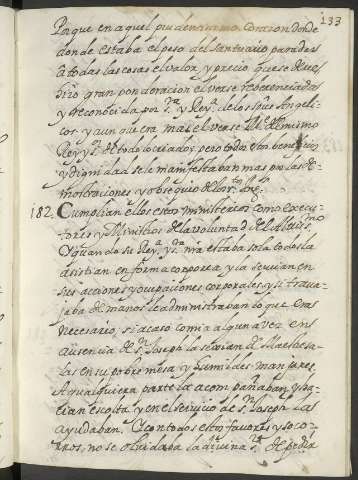 133
Porque en aquel prudentissimo corason donde
donde estaba el peso del santuario para dar
â todas las cosas el valor, y precio que se deve,
hiço gran ponderacion el verse reberenciada
y reconocida por Sª y Reyª de los spus Angeli
cos y aunque era mas el verse Me del mismo
Rey y Sr de todo lo criado; pero todo este beneficio
y dignidad se le manifestaban mas por las de
mostraciones y obsequio de los stos Angs
182. Cumplian ellos estos ministerios como execu
tores y Ministros de la voluntad del Altissmo
y quando su Reyª y Sª nra estaba sola todos la
asistian en forma corporea y la servian en
sus acciones y ocupaciones corporales y si traua
jaba de manos le administraban lo que era
necesario, si acaso comia alguna vez en
ausencia de Sn Joseph la servian de Maestresa
las en su pobre mesa y humildes manjares.
A qualquiera parte la acompañaban y ha
cian escolta y en el servicio de Sn Joseph la
ayudaban. Y con todos estos favores y soco
rros, no se olvidaba la divina Sra de pedir